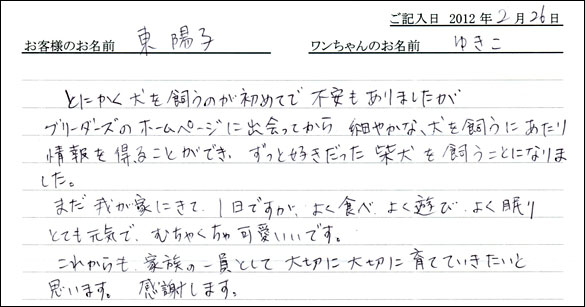 ご記入日 2012年2月26日
お客様のお名前 東 陽子 ワンちゃんのお名前 ゆきこ
とにかく犬を飼うのが初めてで 不安もありましたが
ブリーダーズのホームページに出会ってから 細やかな、犬を飼うにあたり
情報を得ることができ、ずっと好きだった 柴犬を飼うことになりま
した。
まだ 我が家にきて、1日ですが、よく食べ、よく遊び、よく眠り
とても元気で、むちゃくちゃ可愛いいです。
これからも、家族の一員として 大切に大切に育てていきたいと
思います。 感謝します。